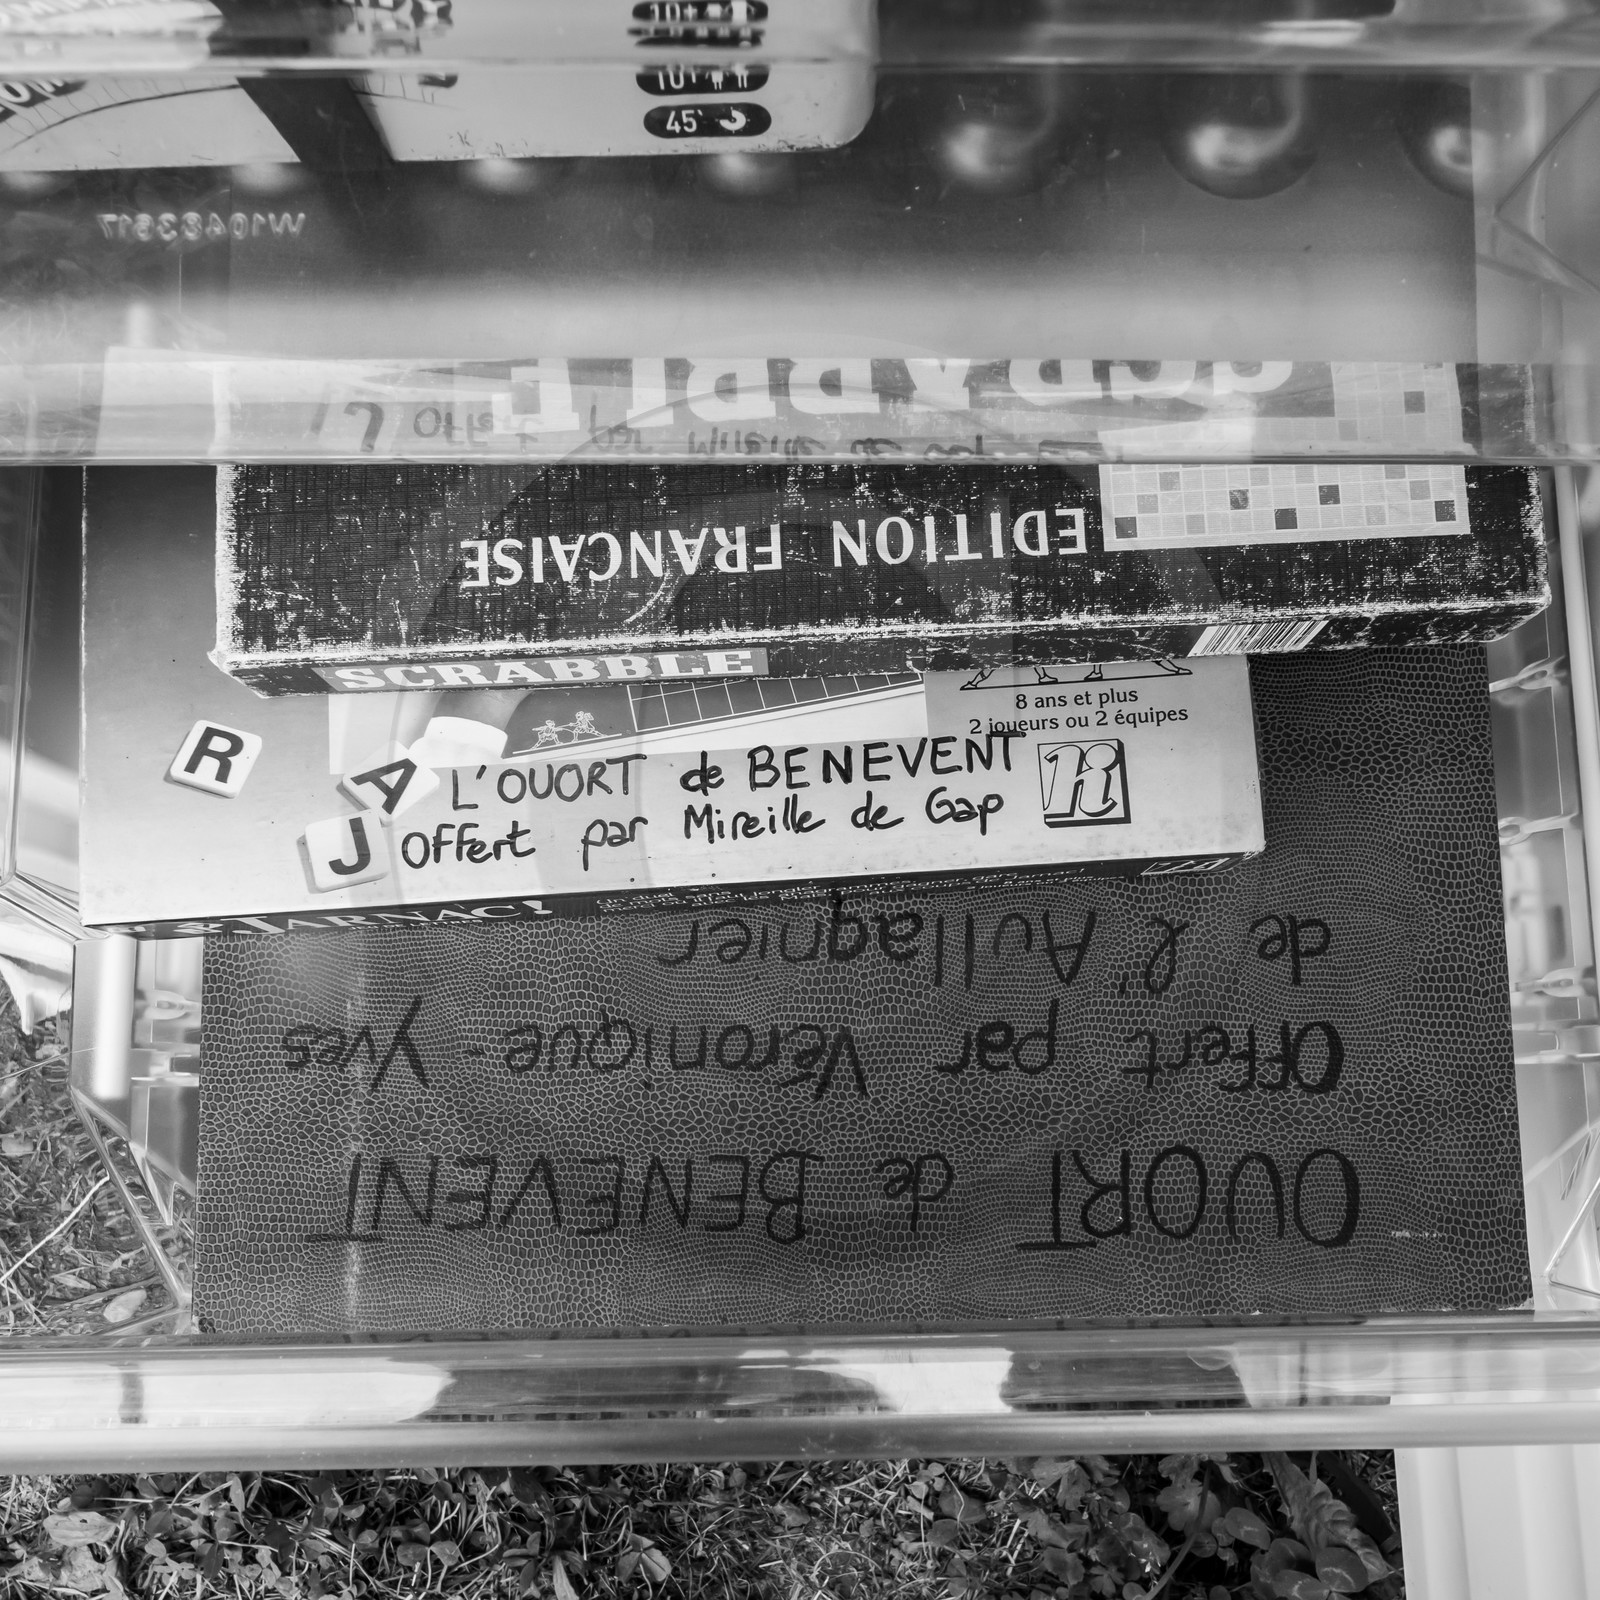 10+
10+
45'
W10483617
SCRABBLE
EDITION FRANÇAISE
SCRABBLE
8 ans et plus
2 joueurs ou 2 équipes
R
A
J
L'OUORT de BENEVENT
Offert par Mireille de Gap
JARNAC!
OUORT de BENEVENT
Offert par Véronique - Yves
de l'Aullagnier